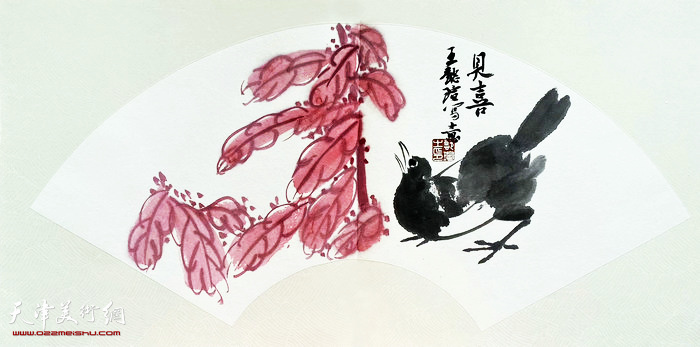 見喜
王懿瑄写意
天津美術網
www.022meishu.com